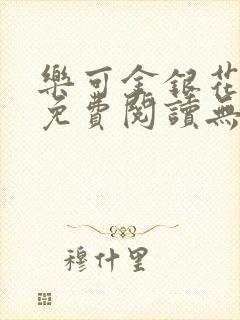 樂可金銀花
免費閱讀無
穆什里